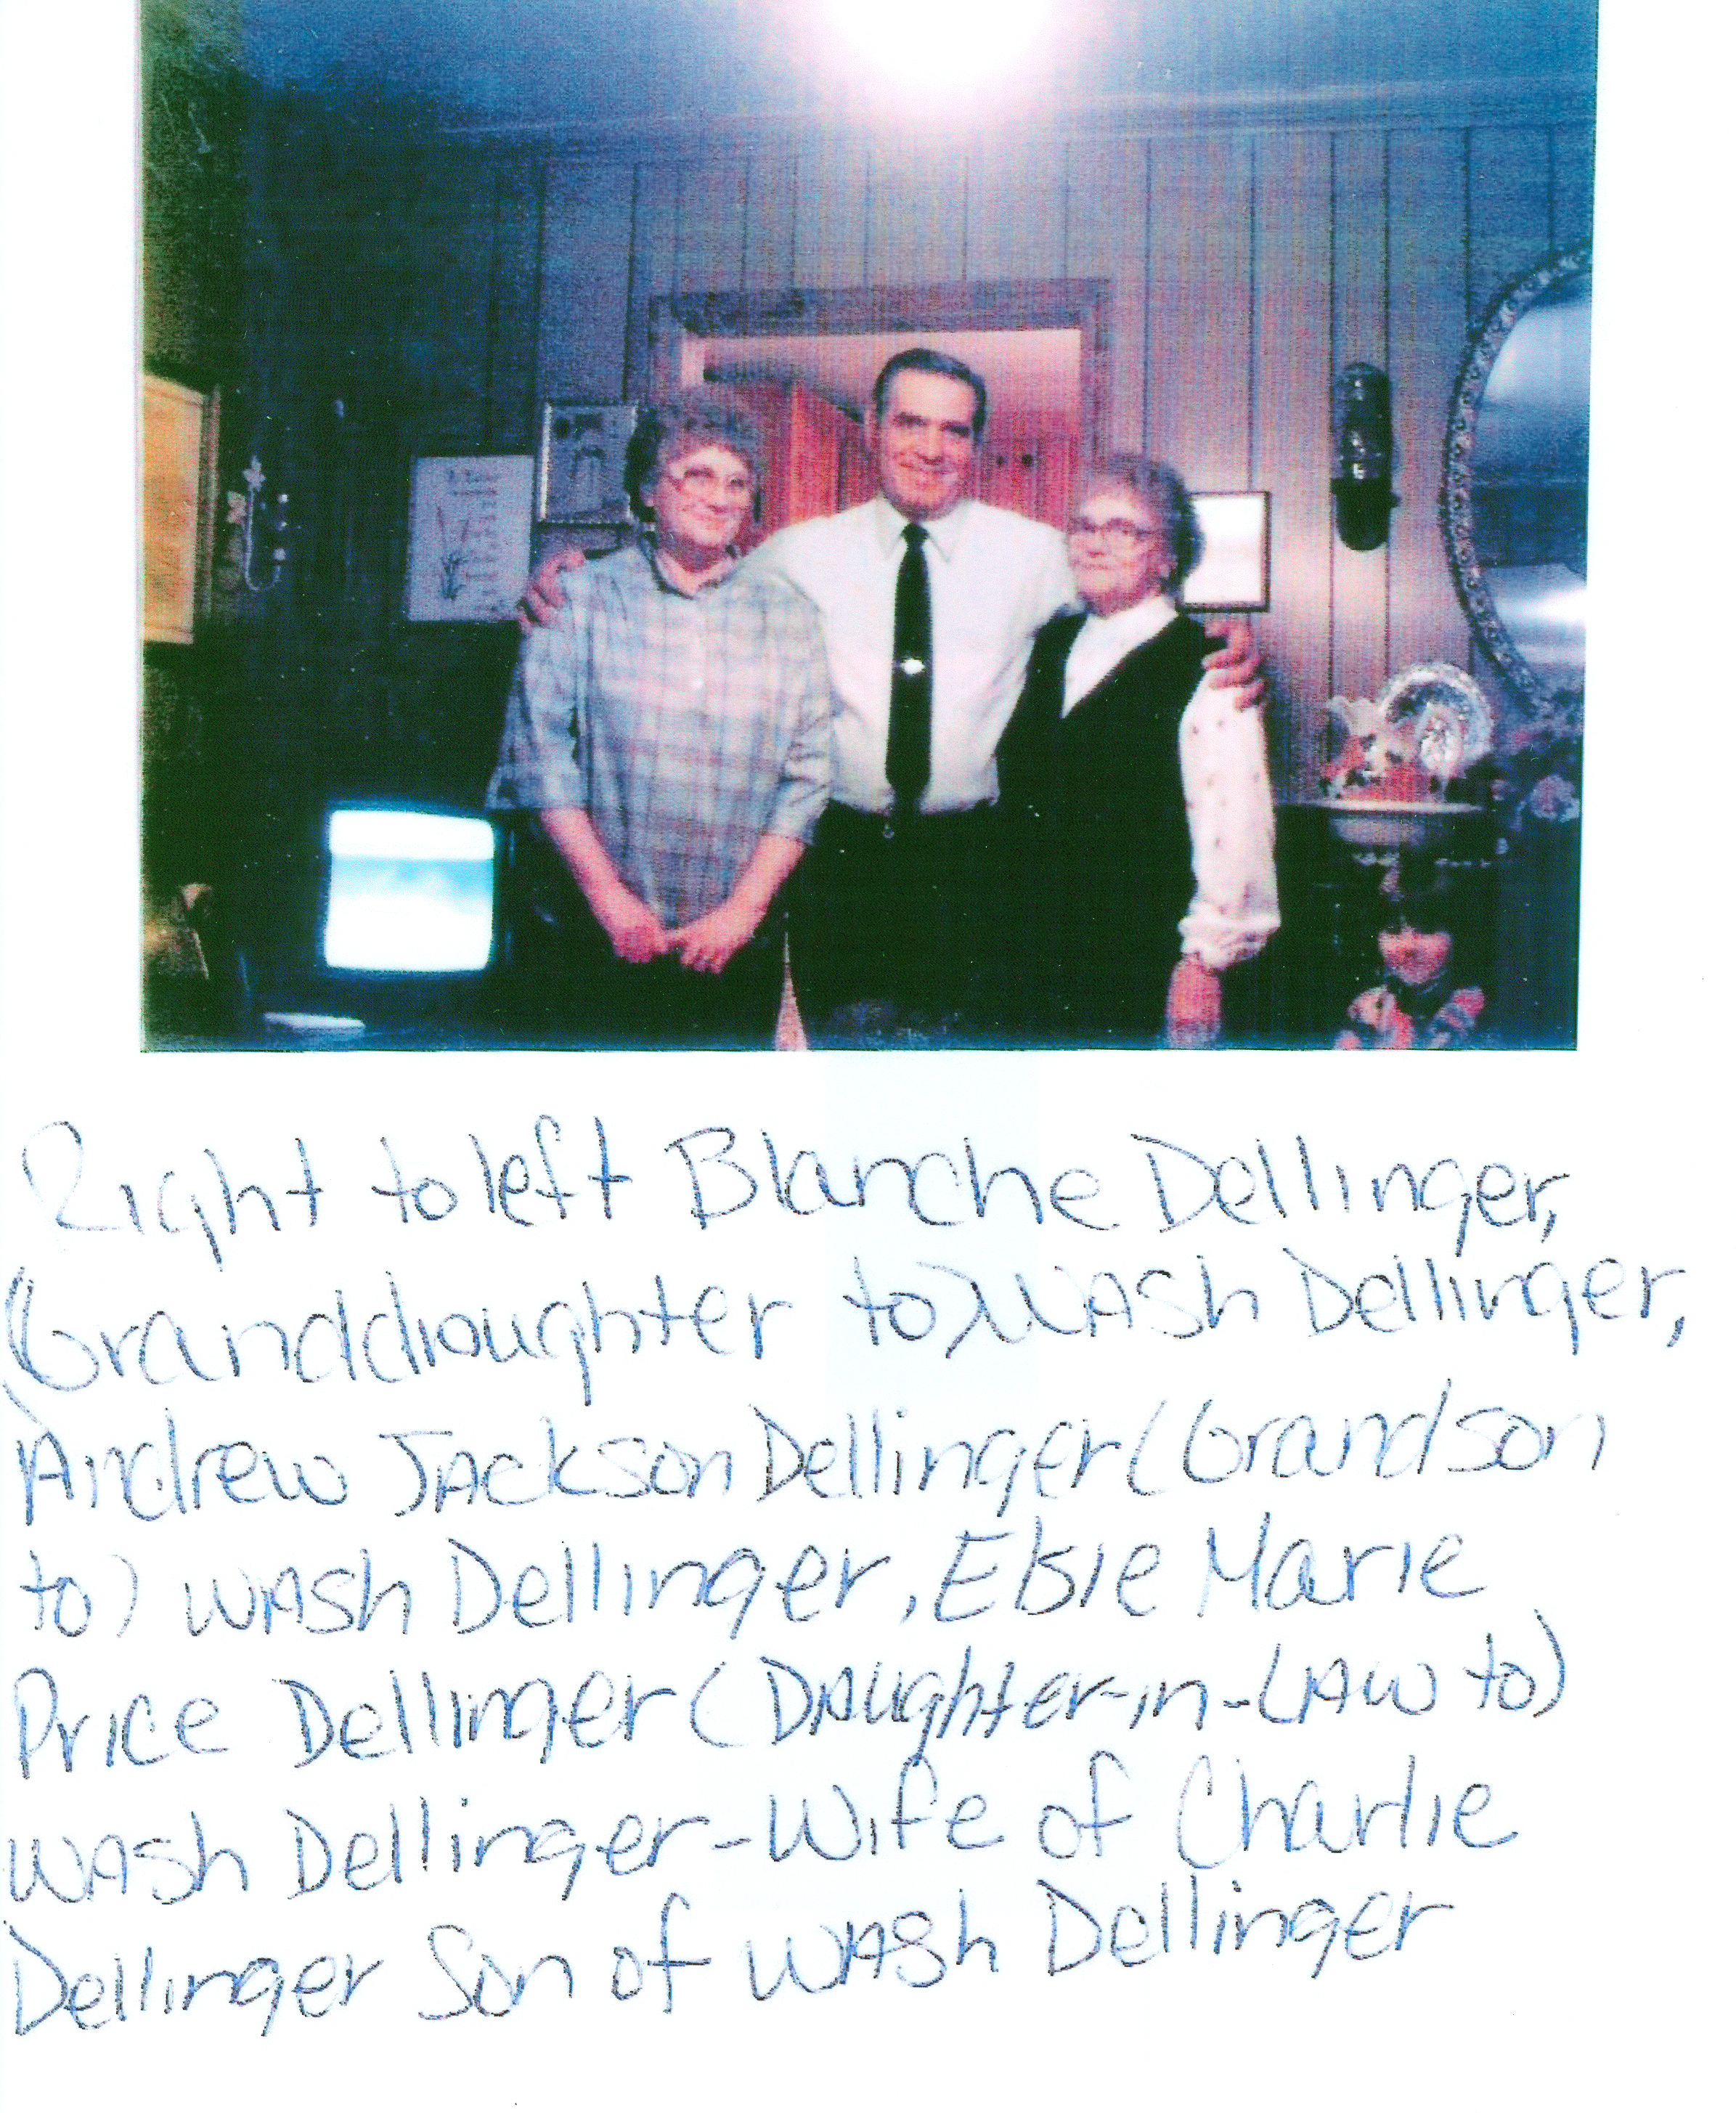 Right to left Blanche Dellinger,
(Granddaughter to) Wash Dellinger,
Andrew Jackson Dellinger (Grandson
to) Wash Dellinger, Elsie Marie
Price Dellinger (Daughter-in-Law to)
Wash Dellinger-Wife of Charlie
Dellinger Son of Wash Dellinger